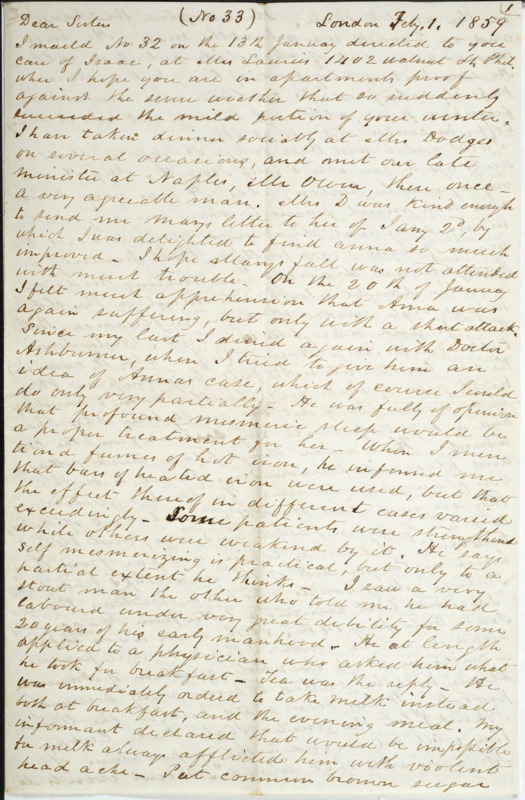 1
(No 33)
Dear Sisters London Feby. 1. 1859
I maild No 32 on the 13th January directed to you
care of Isaac, at Mrs Lauries 1402 walnut St Phil.
wher I hope you are in apartments proof
against the severe weather that so suddenly
succeeded the mild portion of your winter.
I have taken dinner sociably at Mrs Dodges
on several occasions, and met our late
minister at Naples, Mr Owen, there once -
a very agreeable man. Mrs D was kind enough
to send me Marys letter to her of Jany 2d, by
which I was delighted to find anna so much
improved - I hope Marys fall was not attended
with much trouble - On the 20th of January
I felt much apprehension that Anna was
again suffering, but only with a short attack.
Since my last I dined again with Doctor
Ashburner, when I tried to give him an
idea of Annas case, which of course I could
do only very partially - He was fully of opinion
that profound mesmeric sleep would be
a proper treatment for her - When I men
tiond fumes of hot iron, he informed me
that bars of heated iron were used, but that
the effect thereof in different cases varied
exceedingly - Some patients were strengthend
while others were weakend by it. He says
self mesmerizing is practical, but only to a
partial extent he thinks - I saw a very
stout man the other who told me he had
labourd under very great debility for some
20 years of his early manhood - He at length
applied to a physician who asked him what
he took for breakfast - Tea was the reply - He
was immediately orderd to take milk instead
both at breakfast, and the evening meal. My
informant declared that would be impossible
for milk always afflicted him with violent
head ache - Put common brown sugar